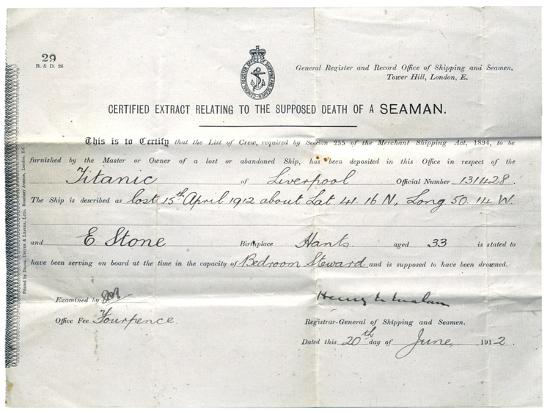 29
R. & D. 26
General Register and Record Office of Shipping and Seamen,
Tower Hill, London, E.
CERTIFIED EXTRACT RELATING TO THE SUPPOSED DEATH OF A SEAMAN.
This is to Certify that the List of Crew, required by Section 255 of the Merchant Shipping Act, 1894, to be
furnished by the Master or Owner of a lost or abandoned Ship, has been deposited in this Office in respect of the
Titanic of Liverpool Official Number 131428.
The Ship is described as lost 15th April 1912 about Lat 41. 16 N, Long 50. 14 W.
and E Stone Birthplace Hants. aged 33 is stated to
have been serving on board at the time in the capacity of Bedroom Steward and is supposed to have been drowned.
Examined by
Office Fee Fourpence.
Registrar-General of Shipping and Seamen.
Dated this 20th day of June 1912.